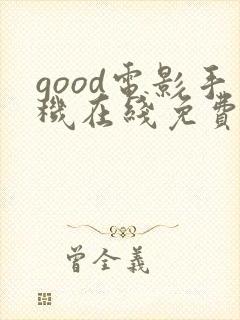 good電影手
機在綫免費
曾全義